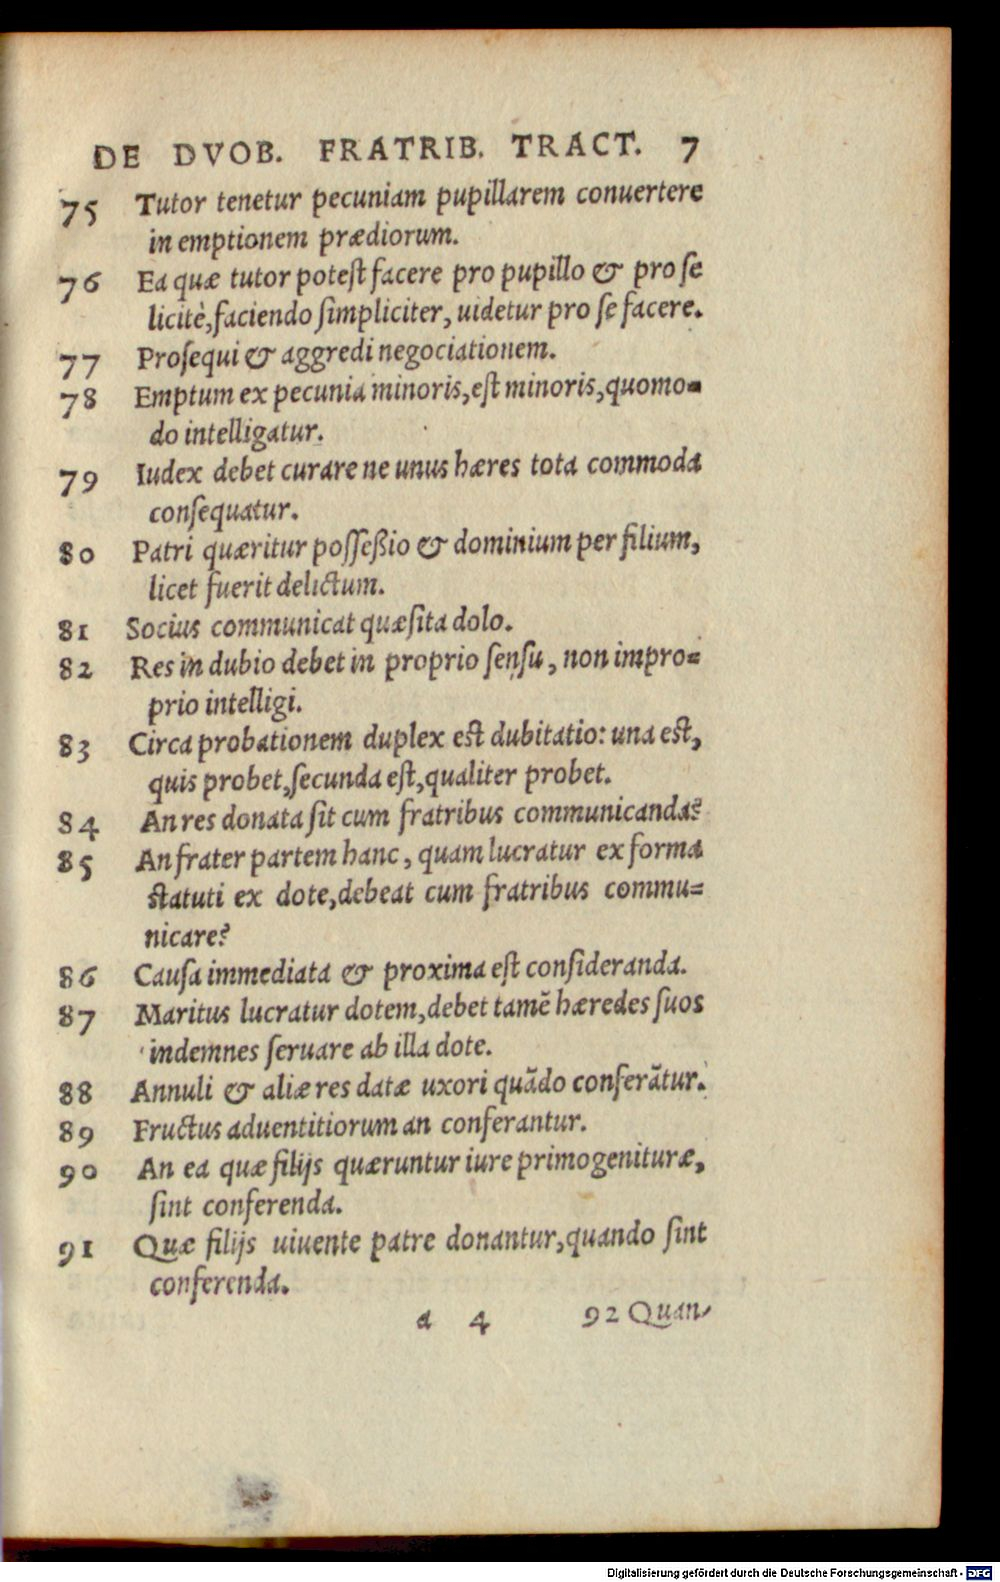 DE DVOB. FRATRIB. TRACT. 7
75 Tutor tenetur pecuniam pupillarem conuertere
in emptionem prædiorum.
76 Ea quæ tutor poteſt facere pro pupillo & pro ſe
licitè, faciendo ſimpliciter, uidetur pro ſe facere.
77 Proſequi & aggredi negociationem.
78 Emptum ex pecunia minoris, eſt minoris, quomo=
do intelligatur.
79 Iudex debet curare ne unus hæres tota commoda
conſequatur.
80 Patri quæritur poſſeßio & dominium per filium,
licet fuerit delictum.
81 Socius communicat quæſita dolo.
82 Res in dubio debet in proprio ſenſu, non impro=
prio intelligi.
83 Circa probationem duplex eſt dubitatio: una eſt,
quis probet, ſecunda eſt, qualiter probet.
84 An res donata ſit cum fratribus communicanda?
85 An frater partem hanc, quam lucratur ex forma
ſtatuti ex dote, debeat cum fratribus commu=
nicare?
86 Cauſa immediata & proxima eſt conſideranda.
87 Maritus lucratur dotem, debet tamẽ hæredes ſuos
indemnes ſeruare ab illa dote.
88 Annuli & aliæ res datæ uxori quãdo conferãtur.
89 Fructus aduentitiorum an conferantur.
90 An ea quæ filijs quæruntur iure primogenituræ,
ſint conferenda.
91 Quæ filijs uiuente patre donantur, quando ſint
conferenda.
a 4 92 Quan-
Digitalisierung gefördert durch die Deutsche Forschungsgemeinschaft - DFG